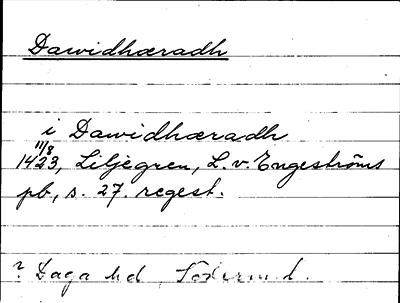 Dawidhæradh
i Dawidhæradh
11/8
1423, Liljegren, L. v. Engeströms
pb, s. 27. regest.
? Daga hd, Söderm l.